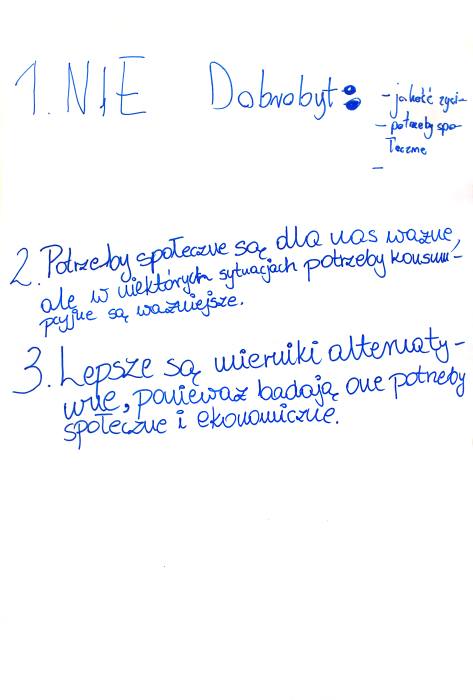 1. NIE Dobrobyt:
- jakość życi-
- potrzeby spo-
łeczne
-
2. Potrzeby społeczne są dla nas ważne,
ale w niektórych sytuacjach potrzeby konsum-
pcyjne są ważniejsze.
3. Lepsze są mierniki alternaty-
wne, ponieważ badają one potrzeby
społeczne i ekonomiczne.